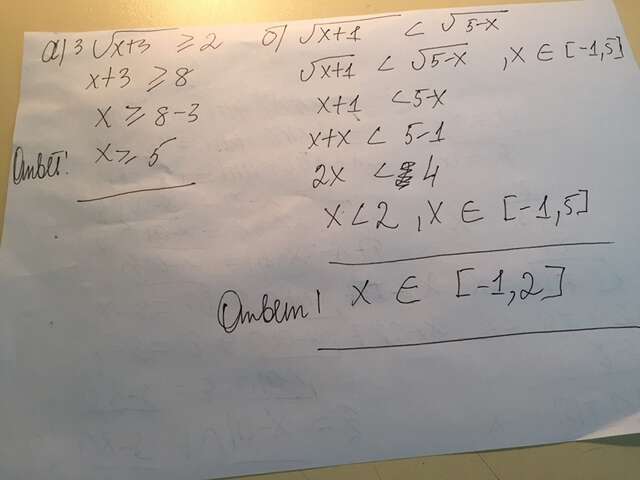 а) 3√x+3 ≥ 2
x+3 ≥ 8
x ≥ 8-3
Ответ! x ≥ 5
б) √x+1 < √5-x
√x+1 < √5-x , x ∈ [-1,5]
x+1 < 5-x
x+x < 5-1
2x < 4
x < 2 , x ∈ [-1,5]
Ответ! x ∈ [-1,2]